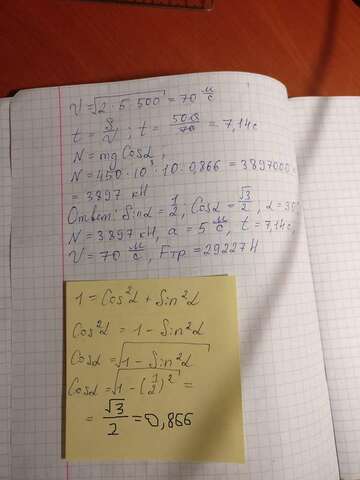 V = √2 · 5 · 500 = 70 м/с
t = S/V ; t = 500/70 = 7,14 с
N = mg Cosα,
N = 450 · 10³ · 10 · 0,866 = 3897000
= 3897 кН
Ответ: Sinα = 1/2, Cosα = √3/2, α = 30°
N = 3897 кН, a = 5 м/с, t = 7,14с
V = 70 м/с, Fтр = 29227 Н
1 = Cos²α + Sin²α
Cos²α = 1 − Sin²α
Cosα = √1 − Sin²α
Cosα = √1 − (1/2)² =
= √3/2 = 0,866